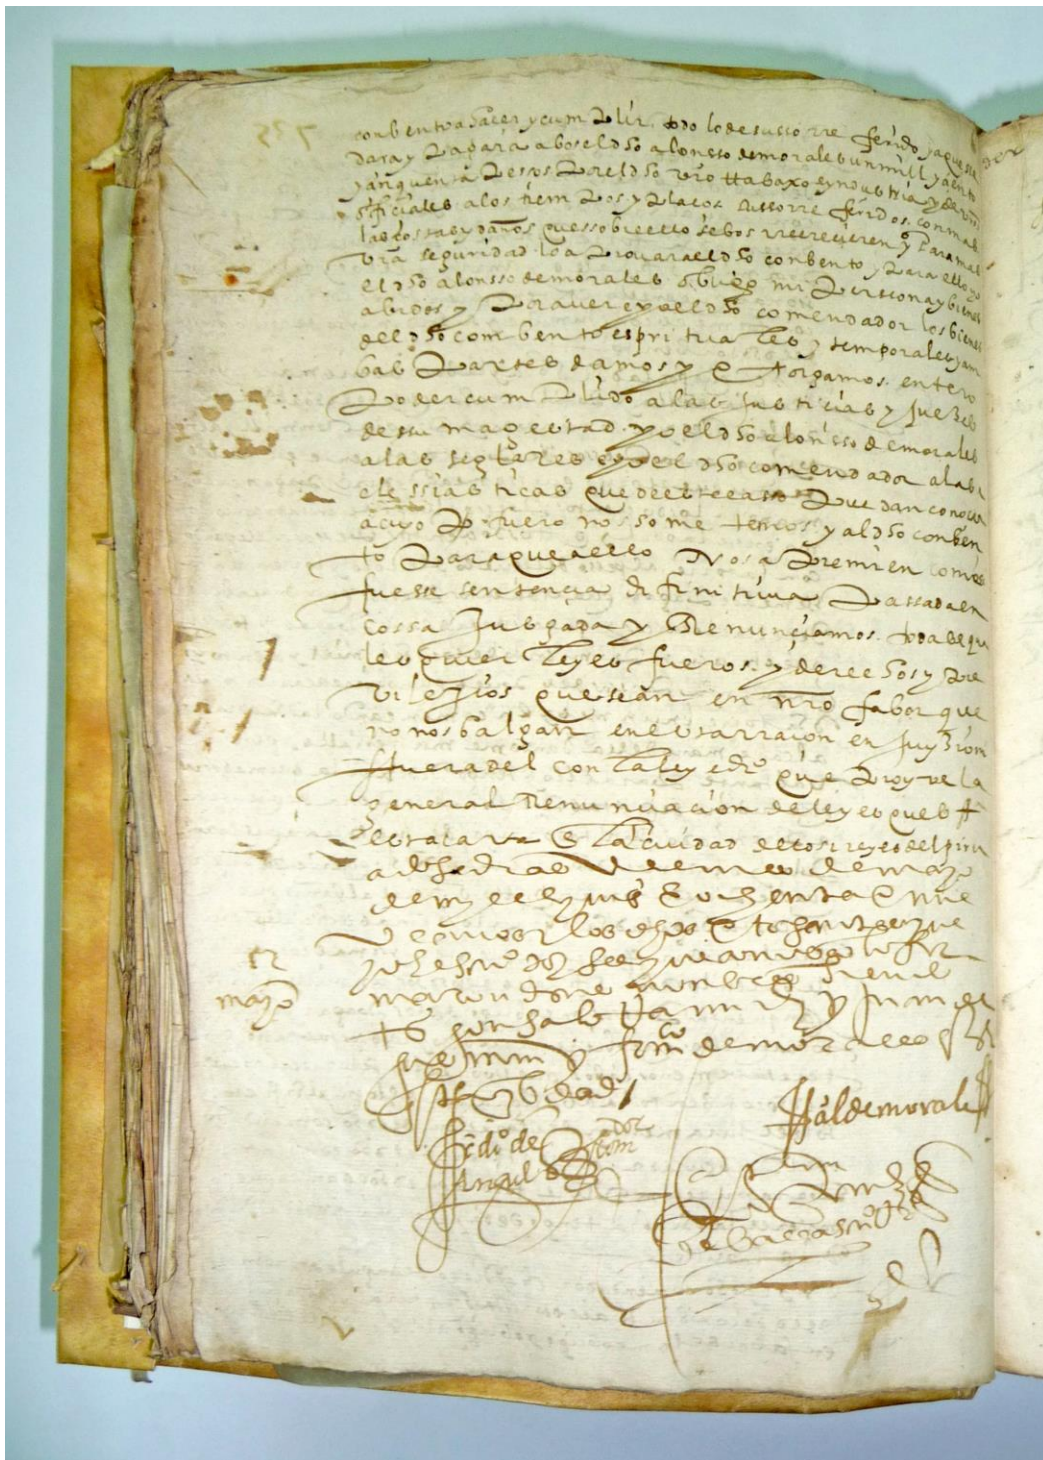 conbento a hacer y cumplir todo lo de susso rreferido y a que se
dara y pagara a bos el dho alonsso de morales un mill y ciento
y cinquenta pessos por el dho vro trabaxo e yndustria y de vros
officiales a los tiempos y placos susso rreferidos con mas
las costas y daños que ssobre ello se bos rrecrecieren y para mas
vra seguridad lo aprovara el dho conbento y para ello yo
el dho alonsso de morales obligo mi persona y bienes
abidos y por aver e yo el dho comendador los bienes
del dho combento espirituales y temporales y am
bas partes damos y otorgamos entero
poder cumplido a las justicias y juezes
de su magestad yo el dho alonsso de morales
a las seglares e yo el dho comendador a las
eclessiasticas que de este casso puedan conocer
a cuyo fuero nos sometemos y al dho conben
to para que a ello nos apremien como si
fuesse sentencia difinitiva passada en
cossa jusgada y rrenunciamos todas e qua
lesquier leyes fueros y derechos y pre
vilegios que sean en nro fabor que
no nos balgan en esta rraçon en juyzio ni
fuera del con la ley e dro que proyve la
general rrenunciacion de leyes ques ff
esta carta en la ciudad de los reyes del piru
a dias de mayo
de mill e quis e ochenta e nue
ve años los dhos otorgantes que
yo el escriuo doy fee que conozco lo fir
maron de sus nombres siendo
ts gonzalo y juan de
y franco de morales
mayo
fr di° de
Angulo comdor
Alº de morales